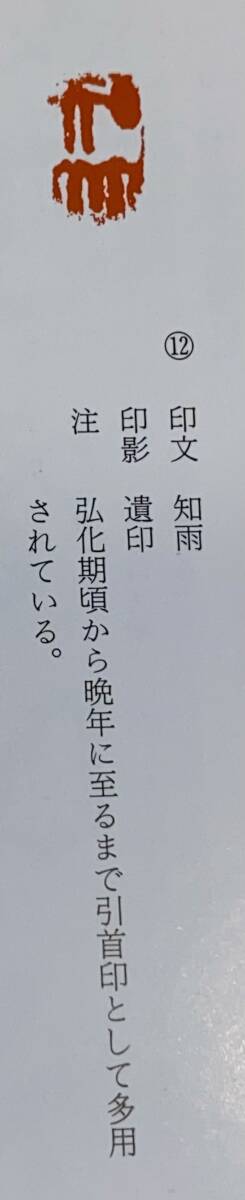 ⑫
印文　知雨
印影　遺印
注　弘化期頃から晩年に至るまで引首印として多用
されている。